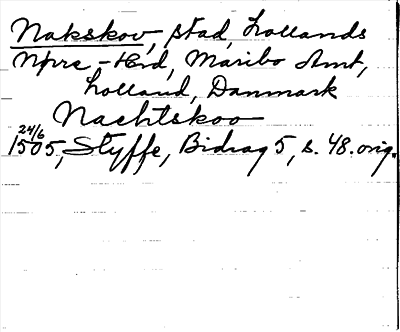 Nakskov, stad, Lollands
Nørre-Hrd, Maribo Amt,
Lolland, Danmark
Nachtskoo
24/6
1505, Styffe, Bidrag 5, s. 48. orig.